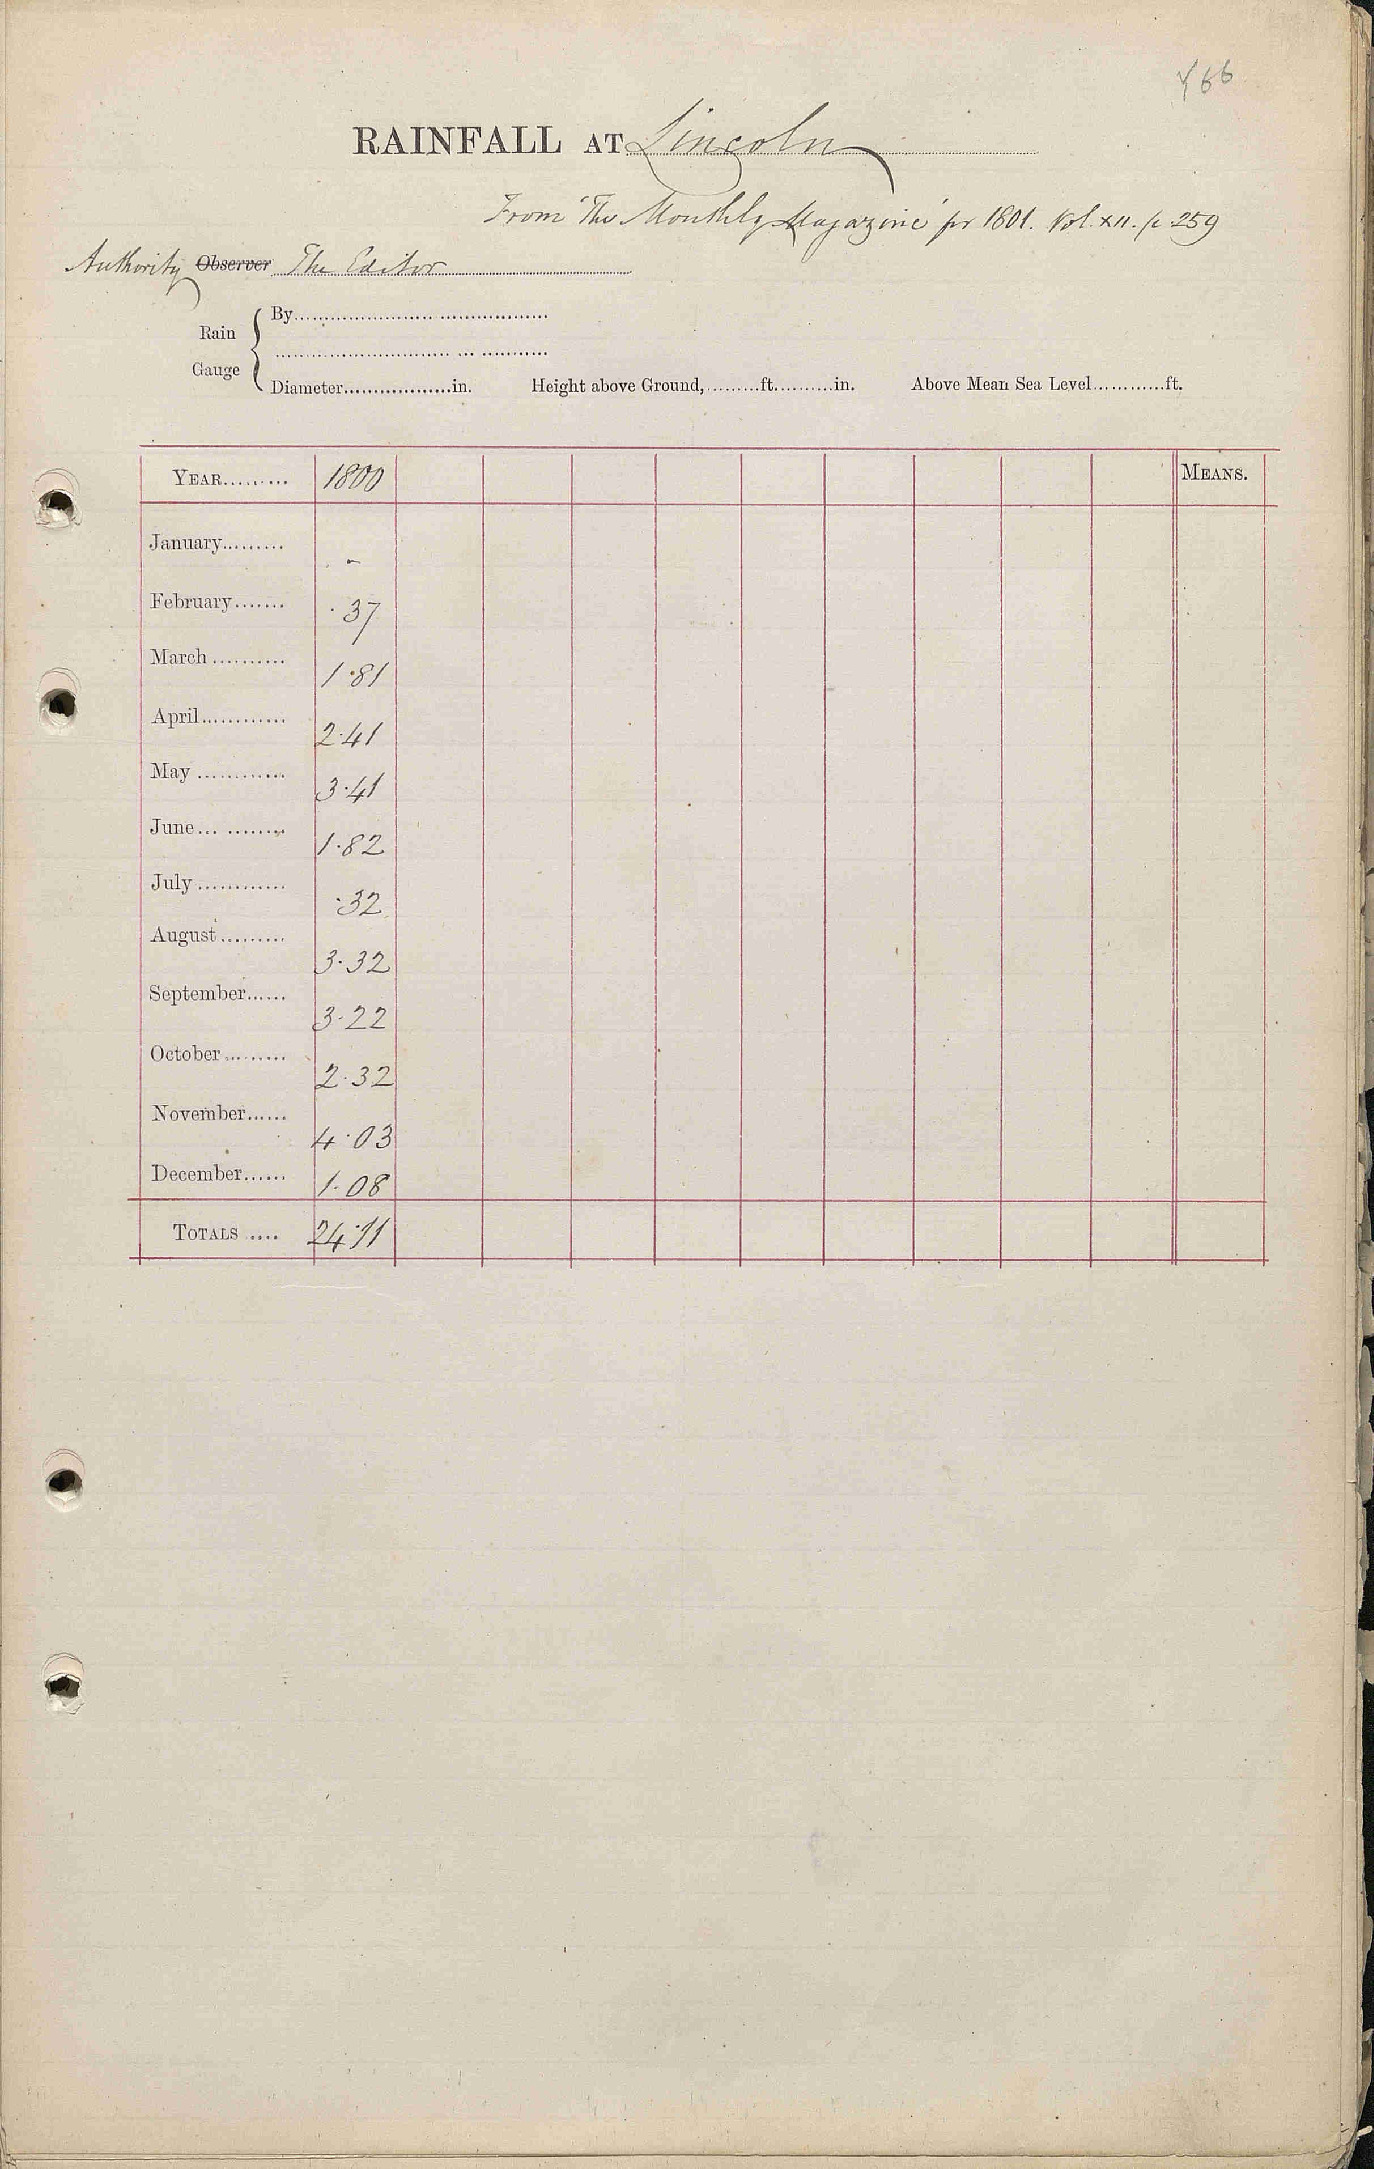 RAINFALL AT Lincoln
From 'The Monthly Magazine' for 1801. Vol. XII. p 259
Authority Observer The Editor
Rain Gauge
By
Diameter..................in. Height above Ground,.........ft..........in. Above Mean Sea Level............ft.
YEAR......... 1800 MEANS.
January......... -
February....... ·37
March .......... 1·81
April............ 2·41
May ............ 3·41
June... ......... 1·82
July ............ ·32
August......... 3·32
September...... 3·22
October......... 2·32
November...... 4·03
December...... 1·08
TOTALS .... 24·11